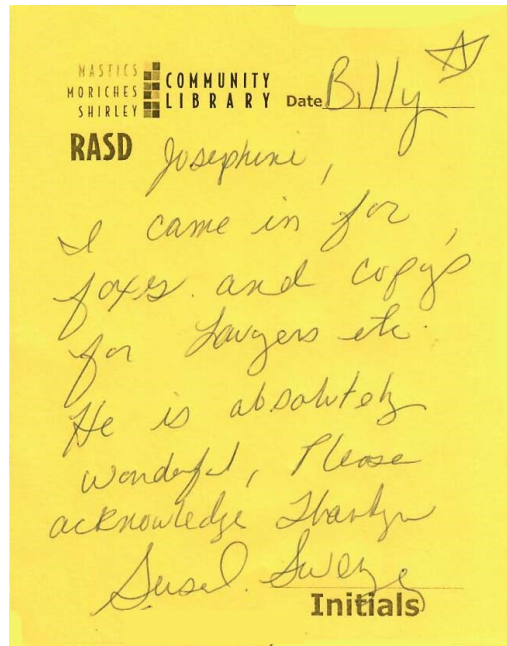 MASTICS
MORICHES
SHIRLEY
COMMUNITY
LIBRARY
Date Billy
RASD
Josephine,
I came in for
faxes. and copys
for Lawyers etc.
He is absolutely
wonderful, Please
acknowledge Thankyu
Initials